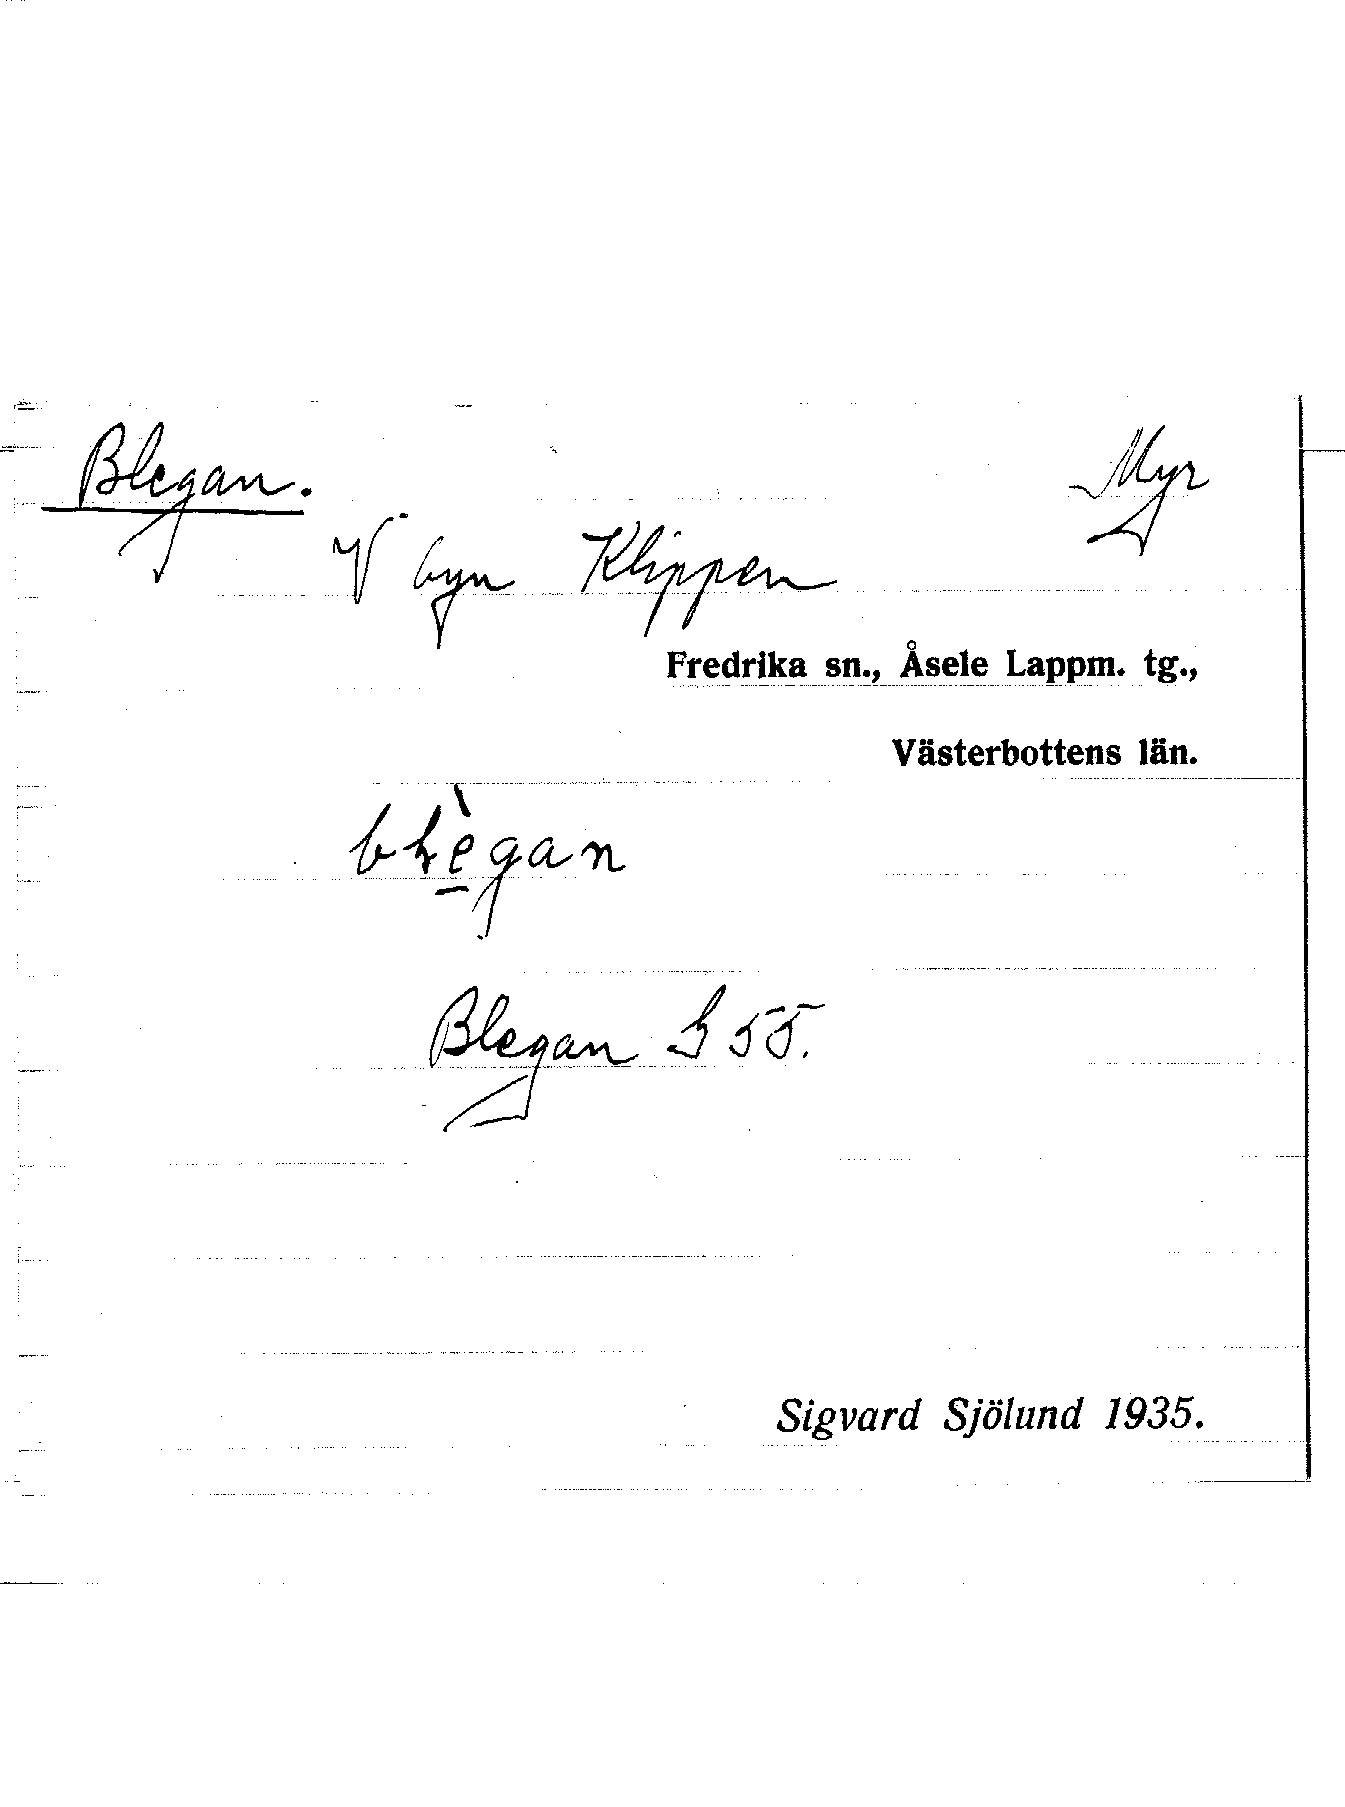 Blegan. Myr
V byn Klippen
Fredrika sn., Åsele Lappm. tg.,
Västerbottens län.
Blegan G 55.
Sigvard Sjölund 1935.